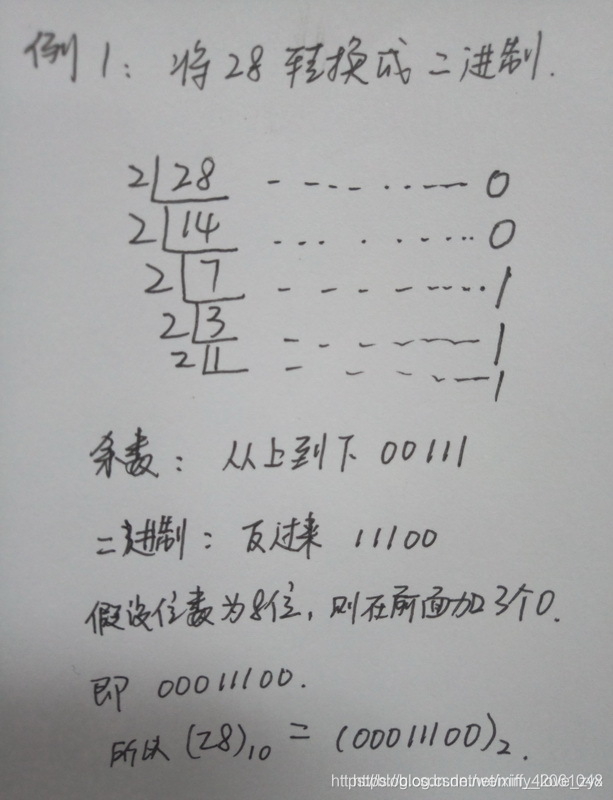 例1: 将28转换成二进制.
2 28 ------- 0
2 14 ....... 0
2 7 ------- 1
2 3 ------- 1
2 1 ------- 1
余数: 从上到下 00111
二进制: 反过来 11100
假设位数为8位, 则在前面加3个0.
即 00011100.
所以 (28)10 = (00011100)2.